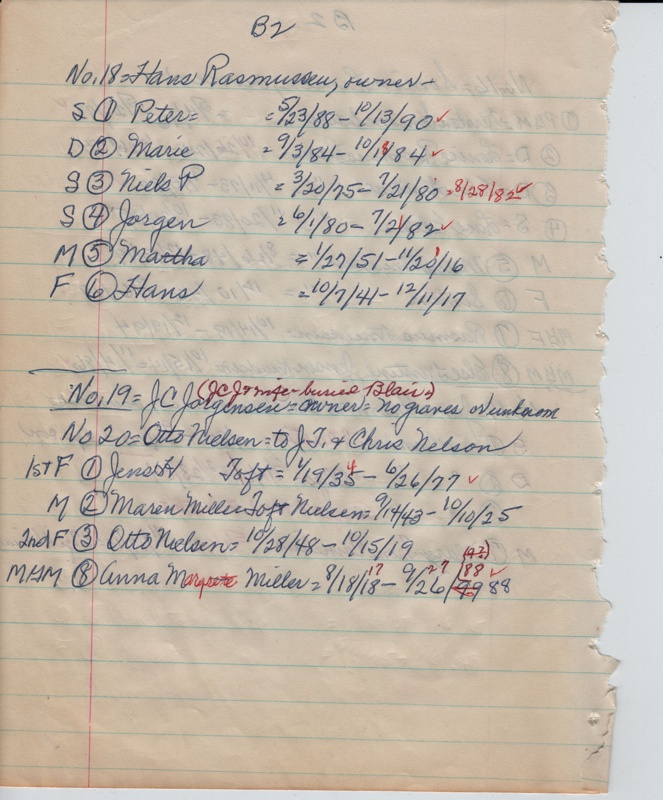 B2
No. 18 = Hans Rasmussen, owner -
S ① Peter = = 5/23/88 - 10/13/90 ✓
D ② Marie = 9/3/84 - 10/1/84 ✓
S ③ Niels P = 3/20/75 - 7/21/80 = 8/28/82 ✓
S ④ Jorgen = 6/1/80 - 7/2/82 ✓
M ⑤ Martha = 1/27/51 - 11/20/16
F ⑥ Hans = 10/7/41 - 12/11/17
(JCJ & wife - buried Blair)
No. 19 = JC Jorgensen = owner = no graves or unknown
No 20 = Otto Nielsen = to J.T. & Chris Nelson
1st F ① Jens Toft = 1/19/35 4 - 6/26/77 ✓
M ② Maren Miller Toft Nielsen = 9/14/43 - 10/10/25
2nd F ③ Otto Nielsen = 10/28/48 - 10/15/19
MHM ⑧ Anna Margrete Miller = 8/18/18 17 - 9/26 27 /88 ✓ 88